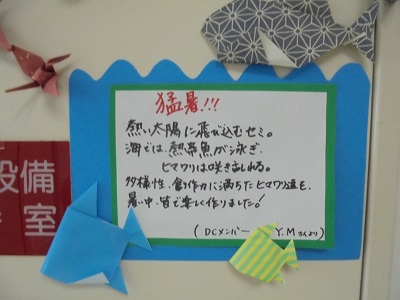 猛暑!!!
熱い太陽に飛び込むセミ。
海では、熱帯魚が泳ぎ、
ヒマワリは咲き乱れる。
多様性、創作力に満ちたヒマワリ達を、
暑い中、皆で楽しく作りました!
(DCメンバー Y.Mさんより)
設備
室